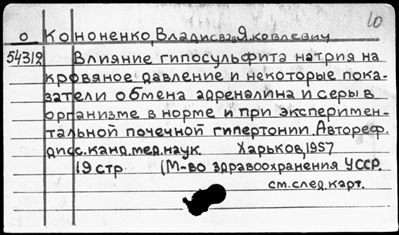 10
о Кононенко, Владисла Яковлевич
54319 Влияние гипосульфита натрия на
кровяное давление и некоторые пока-
затели обмена адреналина и серы в
организме в норме и при эксперимен-
тальной почечной гипертонии. Автореф.
дисс. канд. мед. наук Харьков, 1957
19 стр (М-во здравоохранения УССР.
см. след. карт.